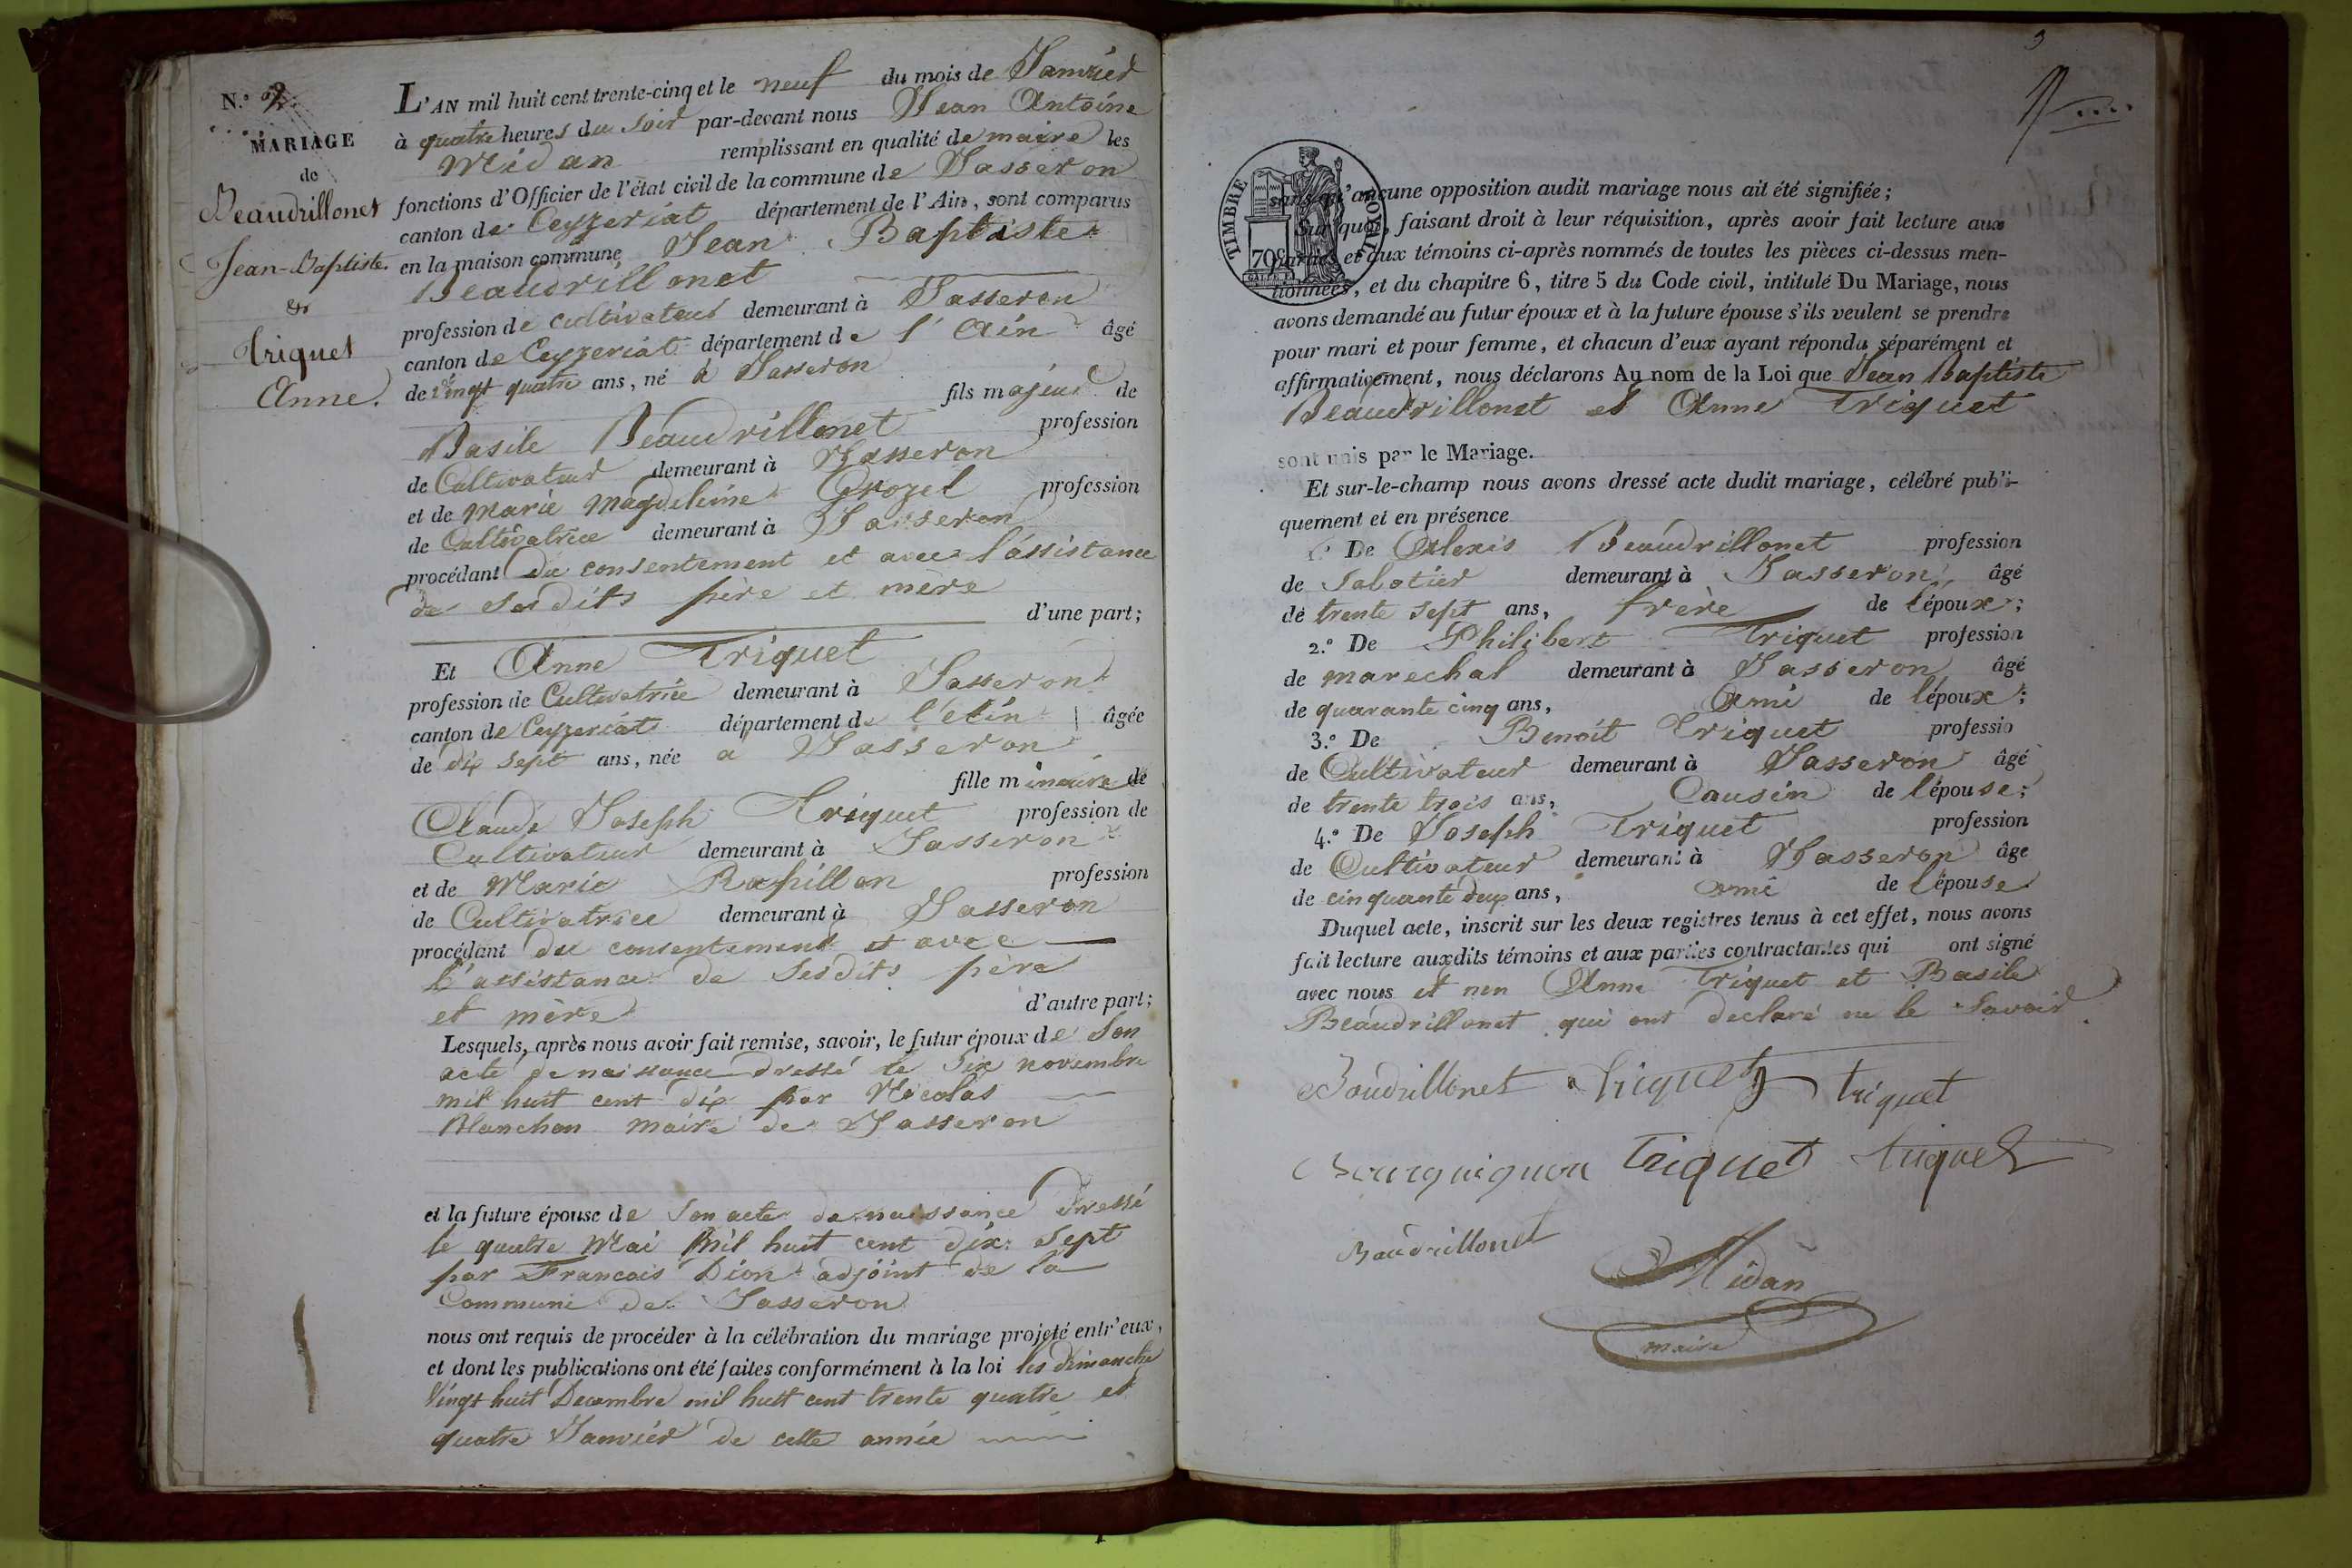 N.º 2.
MARIAGE
de
Beaudrillonet
Jean-Baptiste.
&
Triquet
Anne.
L'AN mil huit cent trente-cinq et le neuf du mois de Janvier
à quatre heures du soir par-devant nous Jean Antoine
Midan remplissant en qualité de maire les
fonctions d'Officier de l'état civil de la commune de Jasseron
canton de Ceyzeriat département de l'Ain, sont comparus
en la maison commune Jean Baptiste
Beaudrillonet
profession de cultivateur demeurant à Jasseron
canton de Ceyzeriat département de l'Ain âgé
de vingt quatre ans, né à Jasseron
fils majeur de
Basile Beaudrillonet profession
de Cultivateur demeurant à Jasseron
et de Marie Magdeleine profession
de Cultivatrice demeurant à Jasseron
procédant du consentement et avec l'assistance
de sesdits père et mère
d'une part;
Et Anne Triquet
profession de Cultivatrice demeurant à Jasseron
canton de Ceyzeriat département de l'Ain âgée
de dix sept ans, née a Jasseron
fille mineure de
Claude Joseph Triquet profession de
Cultivateur demeurant à Jasseron
et de Marie Rapillon profession
de Cultivatrice demeurant à Jasseron
procédant du consentement et avec
l'assistance de sesdits père
et mère d'autre part;
Lesquels, après nous avoir fait remise, savoir, le futur époux de son
acte de naissance dressé le six novembre
mil huit cent dix par Nicolas
Blanchon maire de Jasseron
et la future épouse de son acte de naissance dressé
le quatre Mai mil huit cent dix sept
par Francois Dion adjoint de la
Commune de Jasseron
nous ont requis de procéder à la célébration du mariage projeté entr'eux,
et dont les publications ont été faites conformément à la loi les dimanche
vingt huit Decembre mil huit cent trente quatre et
quatre Janvier de cette année
3
TIMBRE ROYAL
70c
sans qu'aucune opposition audit mariage nous ait été signifiée;
Sur quoi, faisant droit à leur réquisition, après avoir fait lecture aux
parties et aux témoins ci-après nommés de toutes les pièces ci-dessus men-
tionnées, et du chapitre 6, titre 5 du Code civil, intitulé Du Mariage, nous
avons demandé au futur époux et à la future épouse s'ils veulent se prendre
pour mari et pour femme, et chacun d'eux ayant répondu séparément et
affirmativement, nous déclarons Au nom de la Loi que Jean Baptiste
Beaudrillonet et Anne Triquet
sont unis par le Mariage.
Et sur-le-champ nous avons dressé acte dudit mariage, célébré publi-
quement et en présence
1.º De Alexis Beaudrillonet profession
de sabotier demeurant à Jasseron, âgé
de trente sept ans, frère de l'époux;
2.º De Philibert Triquet profession
de marechal demeurant à Jasseron, âgé
de quarante cinq ans, Ami de l'époux;
3.º De Benoit Triquet professio
de Cultivateur demeurant à Jasseron âgé
de trente trois ans, Cousin de l'épouse;
4.º De Joseph Triquet profession
de Cultivateur demeurant à Jasseron âgé
de cinquante deux ans, ami de l'épouse
Duquel acte, inscrit sur les deux registres tenus à cet effet, nous avons
fait lecture auxdits témoins et aux parties contractantes qui ont signé
avec nous et non Anne Triquet et Basile
Beaudrillonet qui ont declaré ne le savoir.
Baudrillonet Triquet triquet
Bourguignon Triquet triquet
Baudrillonet
Midan
maire